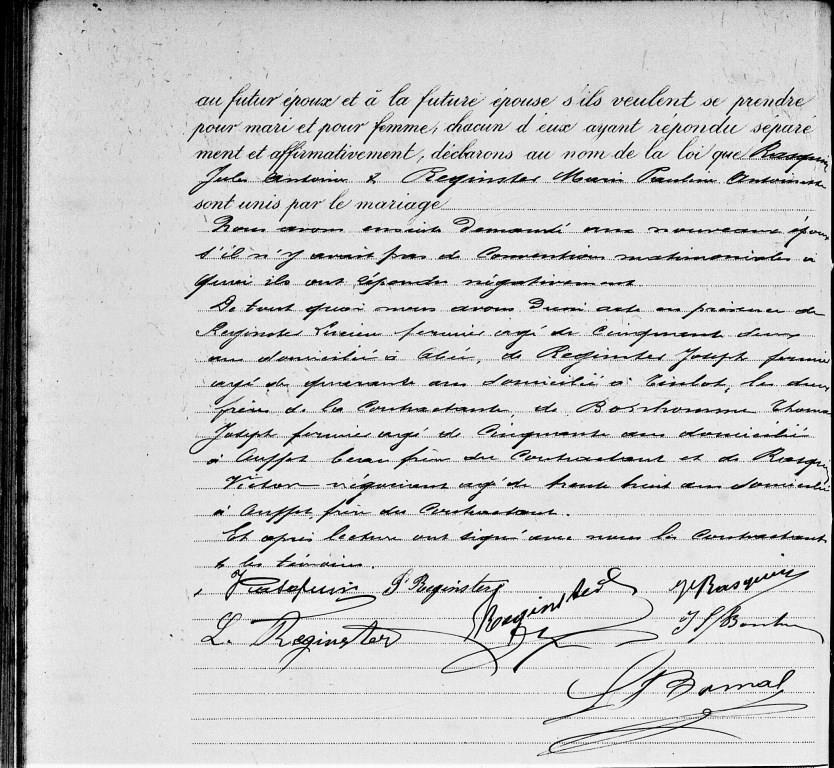 au futur époux et à la future épouse s'ils veulent se prendre
pour mari et pour femme, chacun d'eux ayant répondu séparé
ment et affirmativement, déclarons au nom de la loi que Rasquin
Jules Antoine & Reginster Marie Pauline Antoinette
sont unis par le mariage
Nous avons ensuite demandé aux nouveaux époux
s'il n'y avait pas de conventions matrimoniales à
quoi ils ont répondu négativement
De tout quoi nous avons dressé acte en présence de
Reginster Lucien fermier agé de cinquante deux
ans domicilié à de Reginster Joseph fermier
agé de quarante ans domicilié à Tinlot, les deux
frères de la contractante, de Bonhomme
Joseph fermier agé de cinquante ans domicilié
à Ouffet beau frère du contractant et de Rasquin
Victor négociant agé de trente huit ans domicilié
à Ouffet, frère du contractant.
Et après lecture ont signé avec nous les contractants
& les témoins.
Reginster Reginster Rasquin
L. Reginster
Bomal